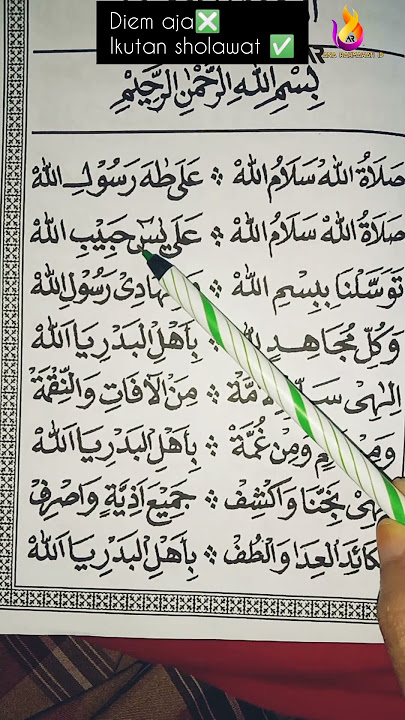 Diem aja❌
Ikutan sholawat ✅
AR
بِسْمِ اللهِ الرَّحْمٰنِ الرَّحِيْمِ
صَلَاةُ اللهْ سَلَامُ اللهْ ⁘ عَلَى طٰهَ رَسُوْلِ اللهْ
صَلَاةُ اللهْ سَلَامُ اللهْ ⁘ عَلَى يٰسٓ حَبِيْبِ اللهْ
تَوَسَّلْنَا بِبِسْمِ اللهْ ⁘ هَادِىْ رَسُوْلِ اللهْ
وَكُلِّ مُجَاهِدٍ ⁘ بِاَهْلِ الْبَدْرِ يَا اَللهْ
اِلٰهِىْ ⁘ مِنَ الْاٰفَاتِ وَالنِّقْمَةْ
وَمِنْ غُمَّةْ ⁘ بِاَهْلِ الْبَدْرِ يَا اَللهْ
نَجِّنَا وَاكْشِفْ ⁘ جَمِيْعَ اَذِيَّةٍ وَاصْرِفْ
كَائِدَ الْعِدَا وَالْطُفْ ⁘ بِاَهْلِ الْبَدْرِ يَا اَللهْ